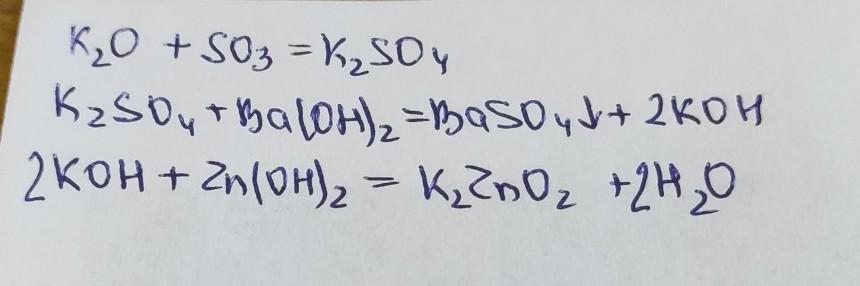 K₂O + SO₃ = K₂SO₄
K₂SO₄ + Ba(OH)₂ = BaSO₄↓ + 2KOH
2KOH + Zn(OH)₂ = K₂ZnO₂ + 2H₂O